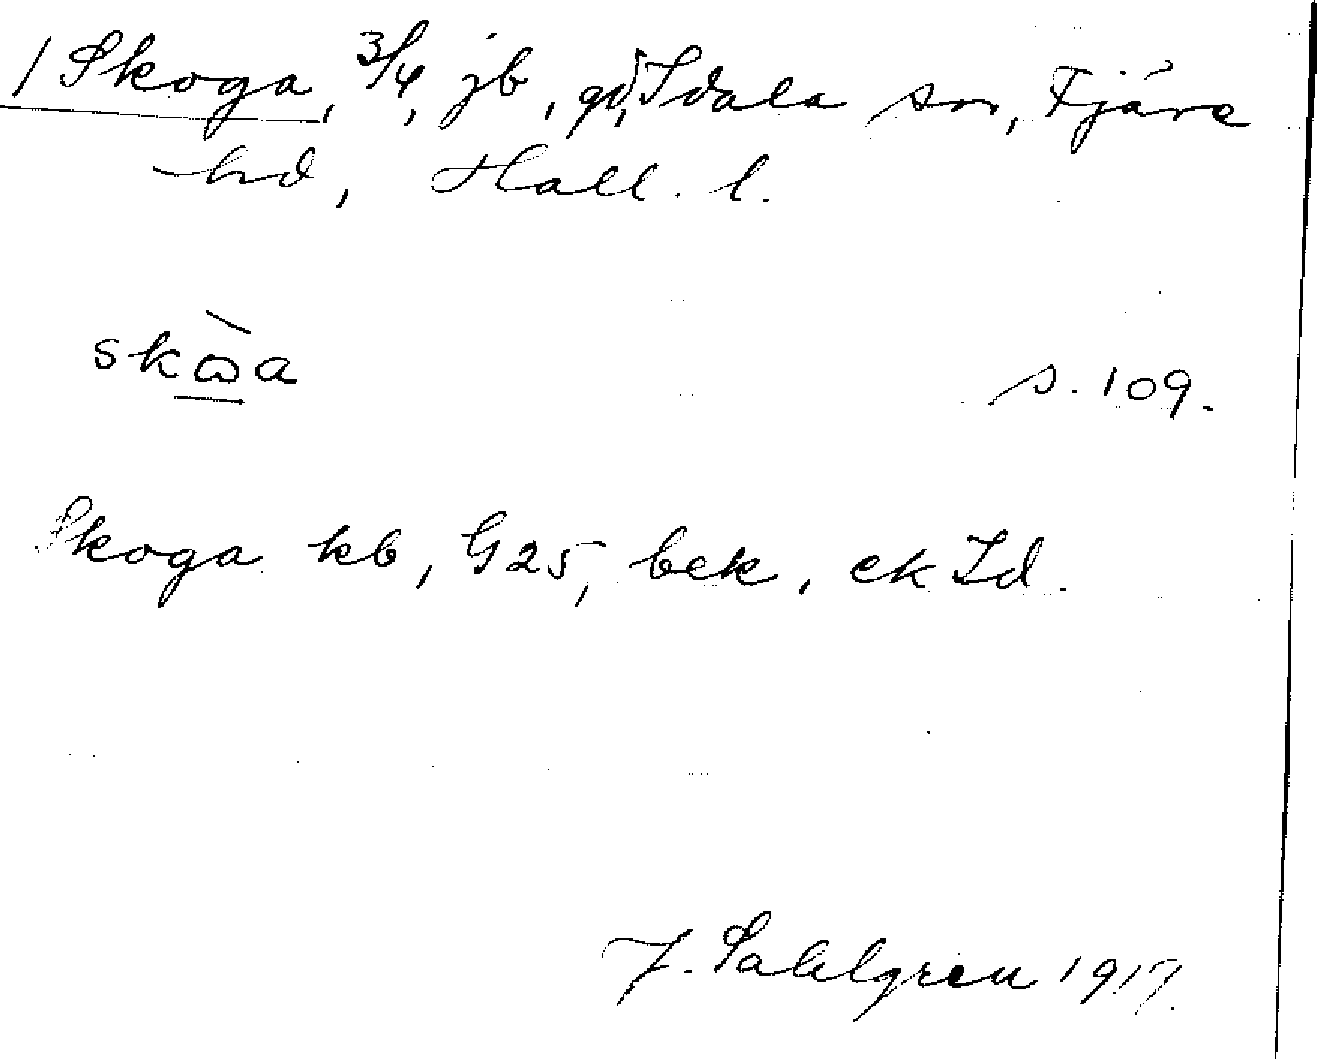 1 Skoga, 3/4, jb, gd, Idala sn, Fjäre
hd, Hall. l.
skɷ̀a
s. 109.
Skoga kb, G25, bek, ek Id.
J. Sahlgren 1917.